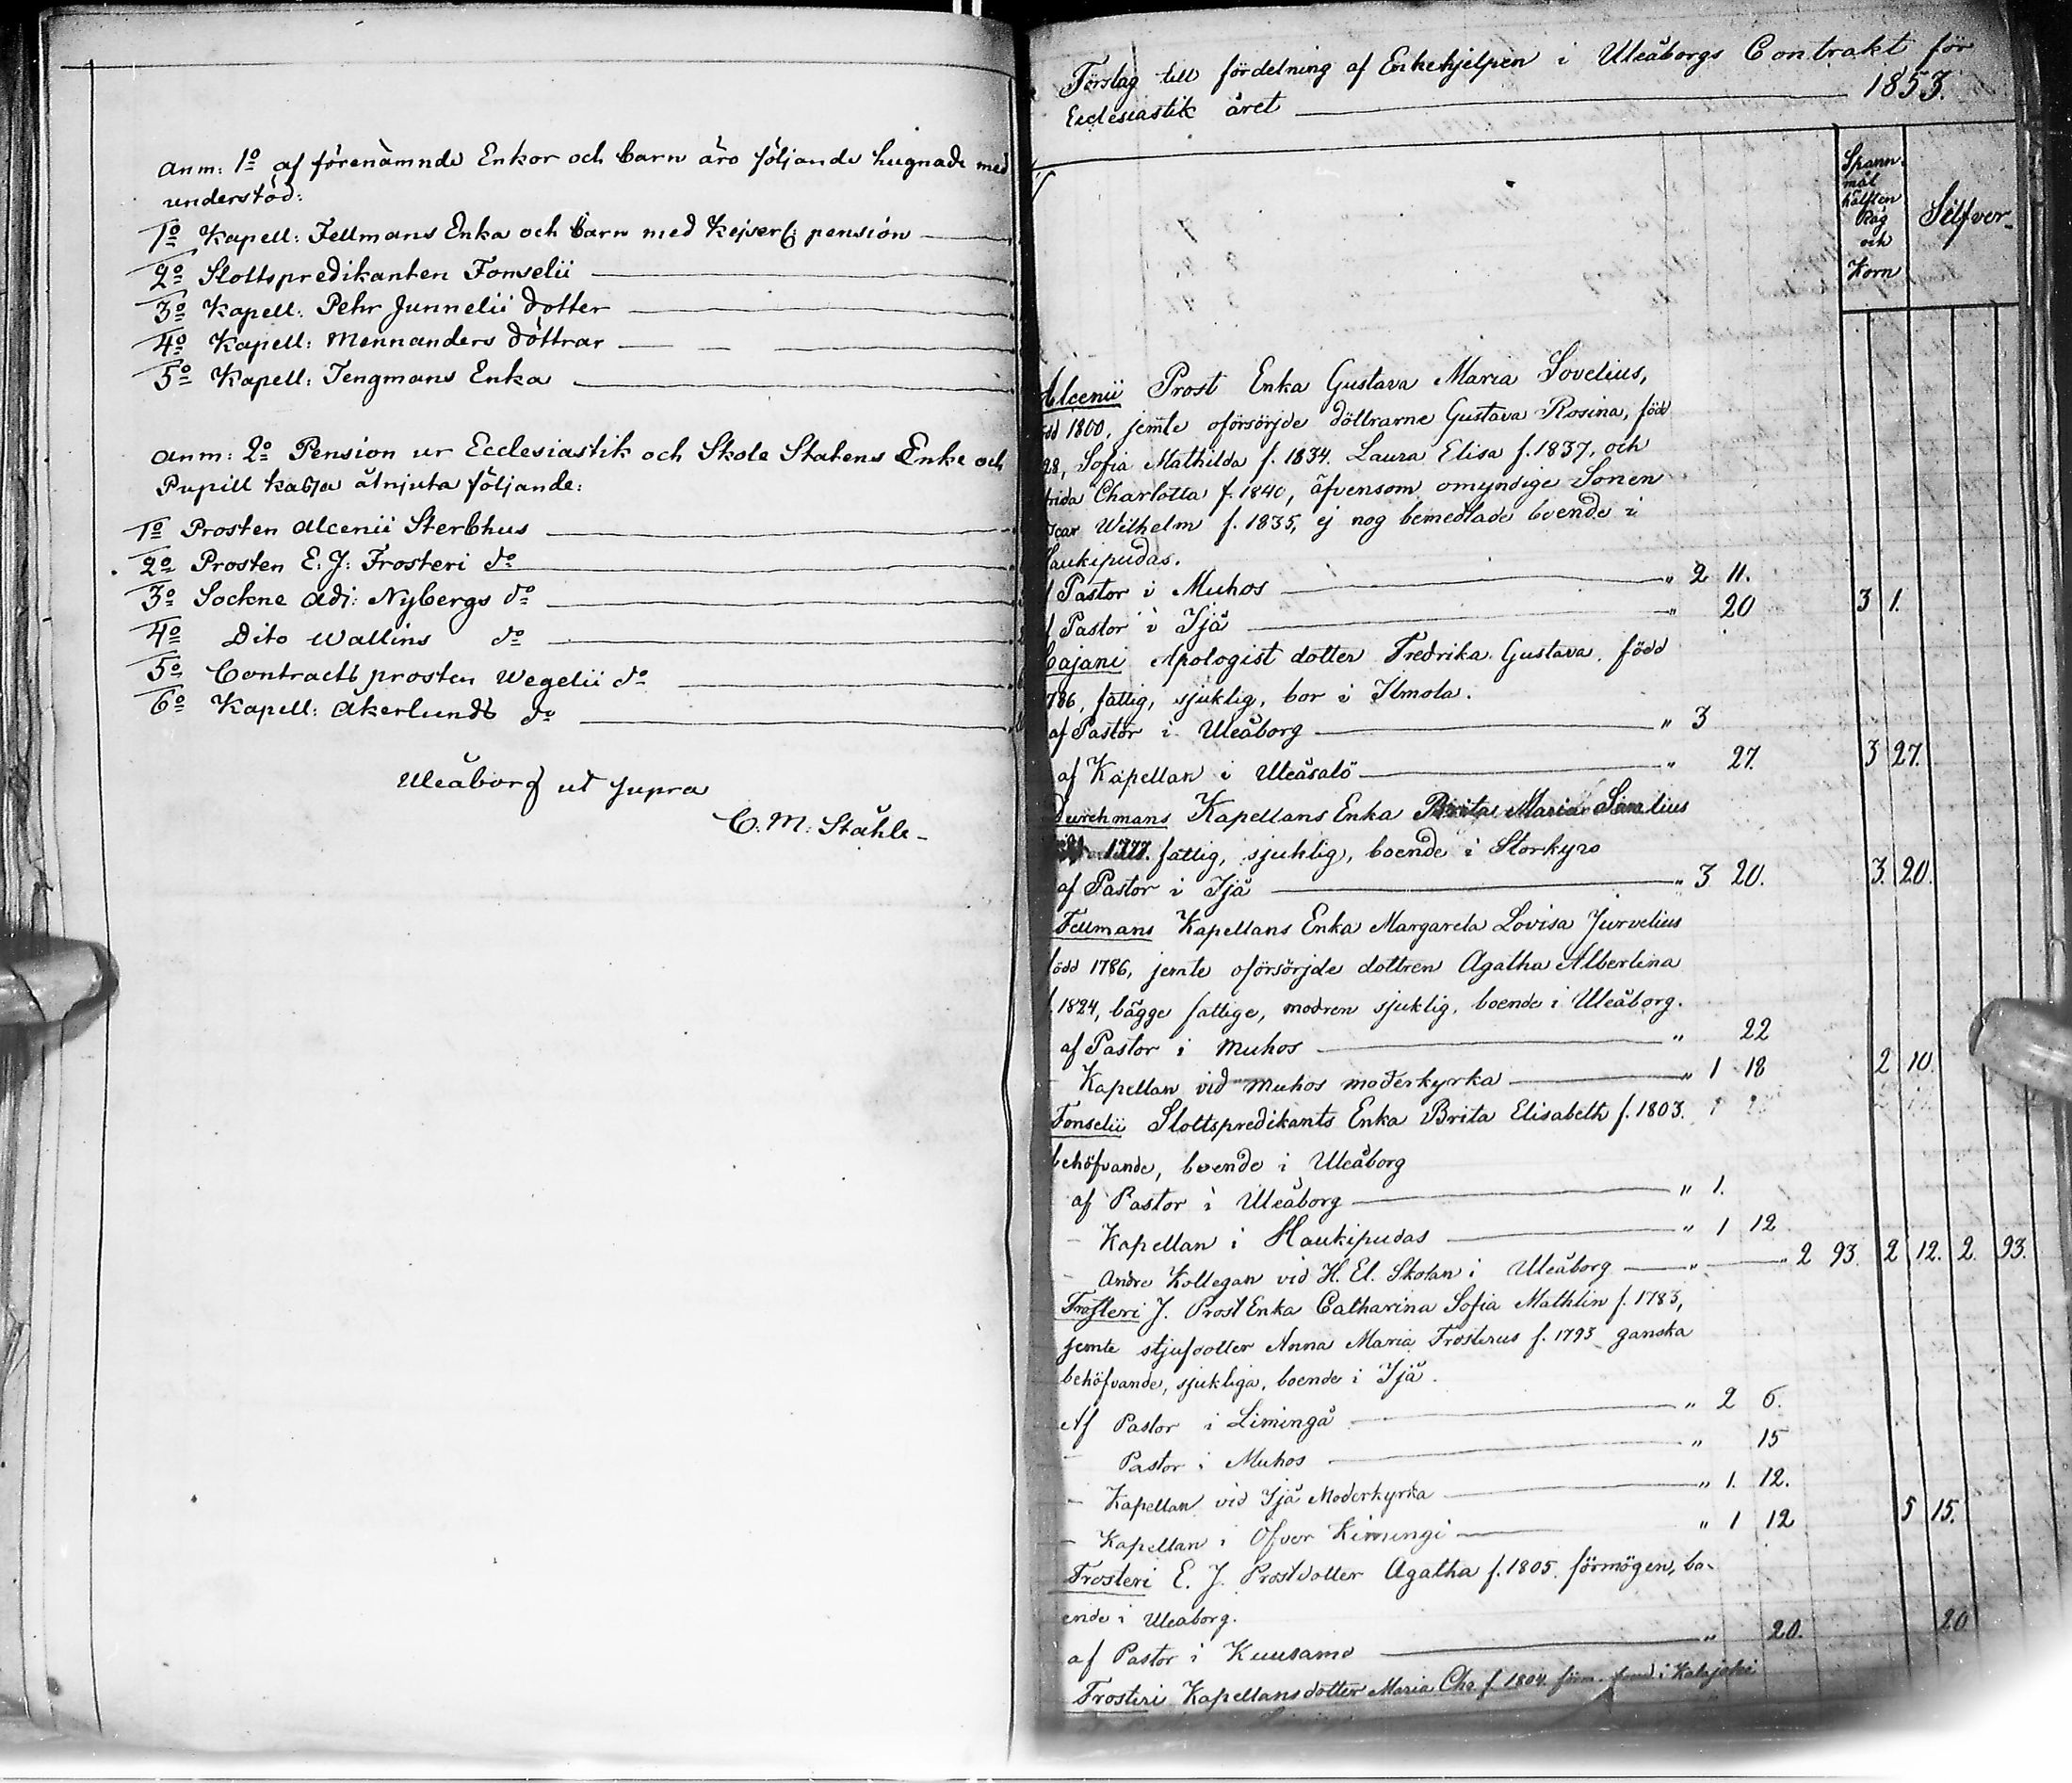 Anm: 1º af förenämnde Enkor och barn äro följande hugnade med
understöd:
1º Kapell: Fellmans Enka och barn med Kejserl: pension
2º Slottspredikanten Fonselii
3º Kapell: Pehr Junnelii dotter
4º Kapell: Mennanders döttrar
5º Kapell: Tengmans Enka
Anm: 2º Pension ur Ecclesiastik och Skole Statens Enke och
Pupill kassa åtnjuta följande:
1º Prosten Alcenii Sterbhus
2º Prosten E: J: Frosteri dº
3º Sockne Adj: Nybergs dº
4º Dito Wallins dº
5º Contracts prosten Wegelii dº
6º Kapell: Akerlunds dº
Uleåborg ut supra
C: M: Ståhle
Förslag till fördelning af Enkehjelpen i Uleåborgs Contrakt för
Ecclesiastik året 1853.
Spann-
mål
hälften
Råg
och
Korn
Silfver
Alcenii Prost Enka Gustava Maria Sovelius,
född 1800, jemte oförsörjde döttrarne Gustava Rosina, född
28, Sofia Mathilda f. 1834. Laura Elisa f. 1837, och
Charlotta f. 1840, äfvensom omyndige Sonen
Wilhelm f. 1835, ej nog bemedlade boende i
Haukipudas.
Pastor i Muhos " 2 11.
Pastor i Ijå " 20 3 1.
Cajani Apologist dotter Fredrika Gustava, född
786, fattig, sjuklig, bor i Ilmola.
af Pastor i Uleåborg " 3
af Kapellan i Uleåsalo " 27. 3 27.
Durchmans Kapellans Enka Brita Maria Simelius
1777. fattig, sjuklig, boende i Storkyro
af Pastor i Ijå " 3 20. 3. 20.
Fellmans Kapellans Enka Margareta Lovisa Jurvelius
född 1786, jemte oförsörjde dottren Agatha Albertina
f. 1824, bägge fattige, modren sjuklig, boende i Uleåborg.
af Pastor i Muhos " 22
- Kapellan vid Muhos moderkyrka " 1 18 2 10.
Fonselii Slottspredikants Enka Brita Elisabeth f. 1803.
behöfvande, boende i Uleåborg
af Pastor i Uleåborg " 1.
- Kapellan i Haukipudas " 1 12
- Andre Kollegan vid H. El. Skolan i Uleåborg " " 2 93. 2 12. 2. 93.
Frosteri J. Prost Enka Catharina Sofia Mathlin f. 1783,
jemte stjufdotter Anna Maria Frosterus f. 1793 ganska
behöfvande, sjukliga, boende i Ijå.
Af Pastor i Limingå " 2 6.
- Pastor i Muhos " 15
- Kapellan vid Ijå Moderkyrka " 1. 12.
- Kapellan i Öfver Kimingi " 1 12 5 15.
Frosteri E. J. Prostdotter Agatha f. 1805. förmögen, bo-
ende i Uleaborg.
af Pastor i Kuusamo " 20. 20
Frosteri Kapellansdotter Maria Cha f. 1804. i Kalajoki